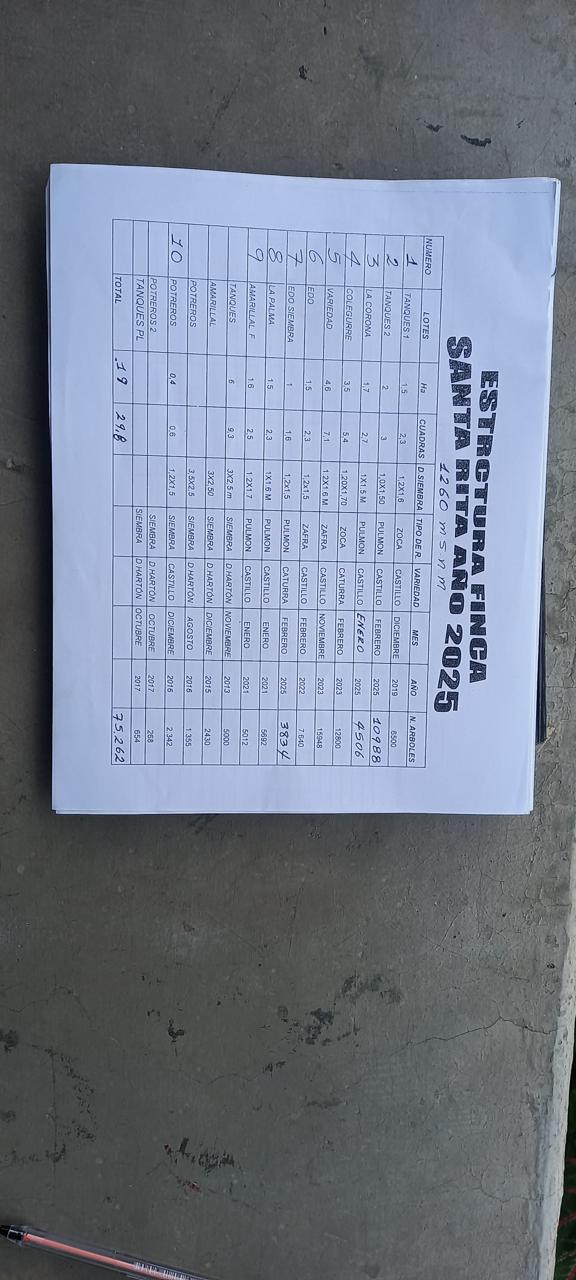 ESTRCTURA FINCA
SANTA RITA AÑO 2025
1260 m s.n.m
NUMERO LOTES Ha CUADRAS D.SIEMBRA TIPO DE R. VARIEDAD MES AÑO N. ARBOLES
1 TANQUES 1 1,5 2,3 1,2X1,6 ZOCA CASTILLO DICIEMBRE 2019 6500
2 TANQUES 2 2 3 1,0X1,50 PULMON CASTILLO FEBRERO 2025 10988
3 LA CORONA 1,7 2,7 1X1,5 M PULMON CASTILLO ENERO 2025 4506
4 COLEGURRE 3,5 5,4 1,20X1,70 ZOCA CATURRA FEBRERO 2023 12800
5 VARIEDAD 4,6 7,1 1,2X1,6 M ZAFRA CASTILLO NOVIEMBRE 2023 15948
6 EDO 1,5 2,3 1,2x1,5 ZAFRA CASTILLO FEBRERO 2022 7.640
7 EDO SIEMBRA 1 1,6 1,2x1,5 PULMON CATURRA FEBRERO 2025 3834
8 LA PALMA 1,5 2,3 1X1,6 M PULMON CASTILLO ENERO 2021 5692
9 AMARILLAL F 1,6 2,5 1,2X1,7 PULMON CASTILLO ENERO 2021 5012
TANQUES 6 9,3 3X2,5 m SIEMBRA D.HARTÓN NOVIEMBRE 2013 5000
AMARILLAL 3X2,50 SIEMBRA D.HARTÓN DICIEMBRE 2015 2430
POTREROS 3,5X2,5 SIEMBRA D.HARTÓN AGOSTO 2016 1.355
10 POTREROS 0,4 0,6 1,2X1,5 SIEMBRA CASTILLO DICIEMBRE 2016 2.342
POTREROS 2 SIEMBRA D.HARTÓN OCTUBRE 2017 268
TANQUES PL SIEMBRA D.HARTÓN OCTUBRE 2017 654
TOTAL 19 29,8 75,262